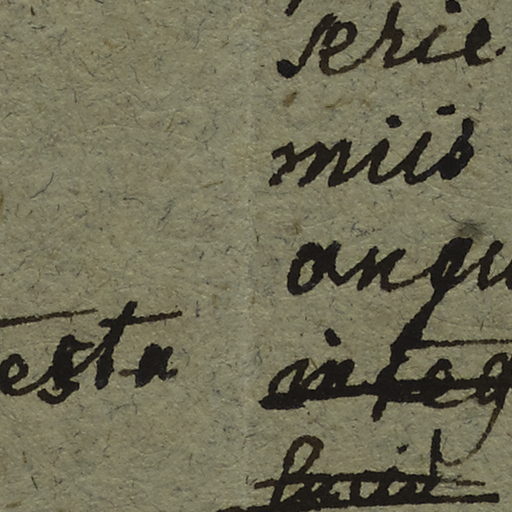 serie
miis
angu
esta
integ